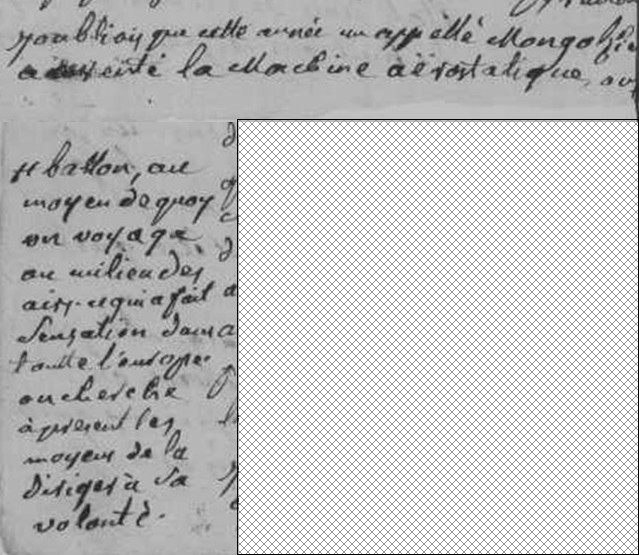 j'oubliois que cette année un appellé Mongolfie
a inventé la Machine aërostatique, ou
# ballon, au
moyen de quoy
on voyage
au milieu des
airs. ce qui a fait
Sensation dans
toutte l'europe.
on cherche
à present les
moyens de la
diriger à Sa
volonté.